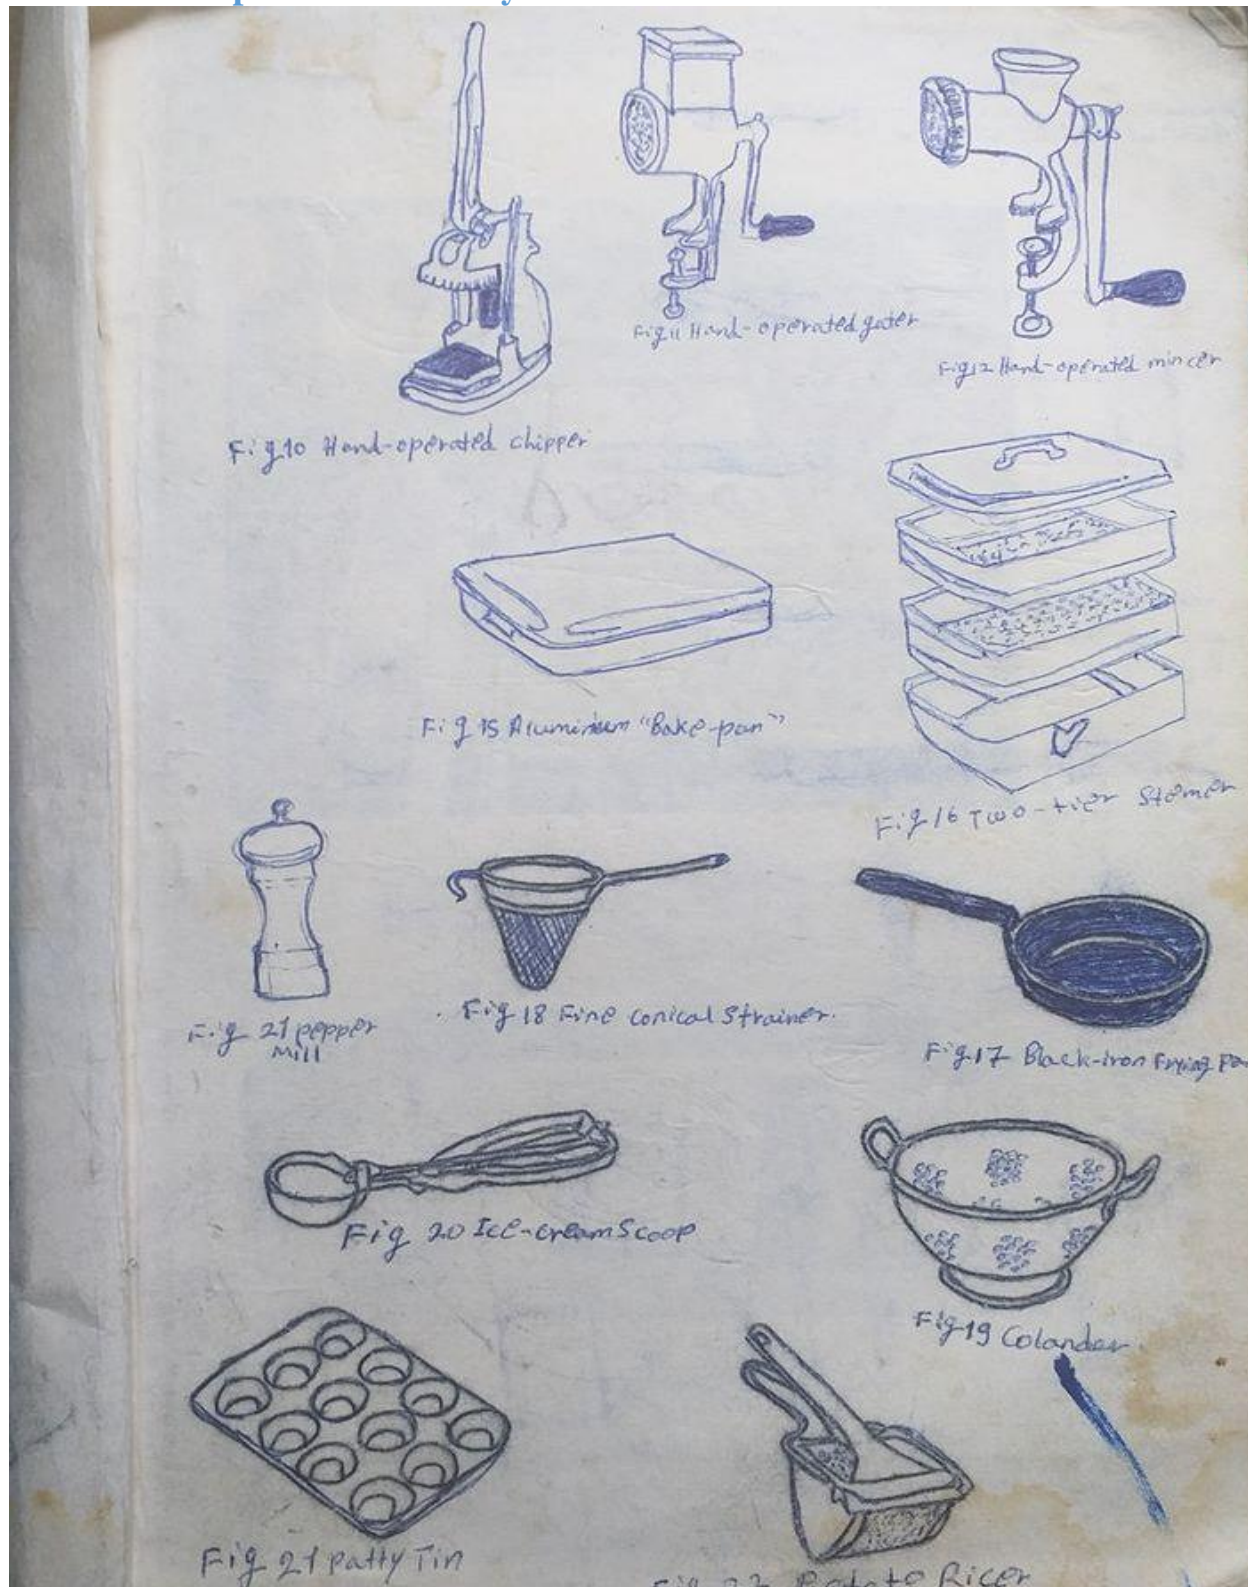 Fig 11 Hand-operated gater
Fig 12 Hand-operated mincer
Fig 10 Hand-operated chipper
Fig 15 Aluminium "Bake-pan"
Fig 16 Two-tier Stemer
Fig 21 pepper
mill
Fig 18 Fine conical Strainer.
Fig 17 Black-iron Frying Pa
Fig 20 Ice-cream Scoop
Fig 19 Colander
Fig 21 Patty Tin
Potato Ricer